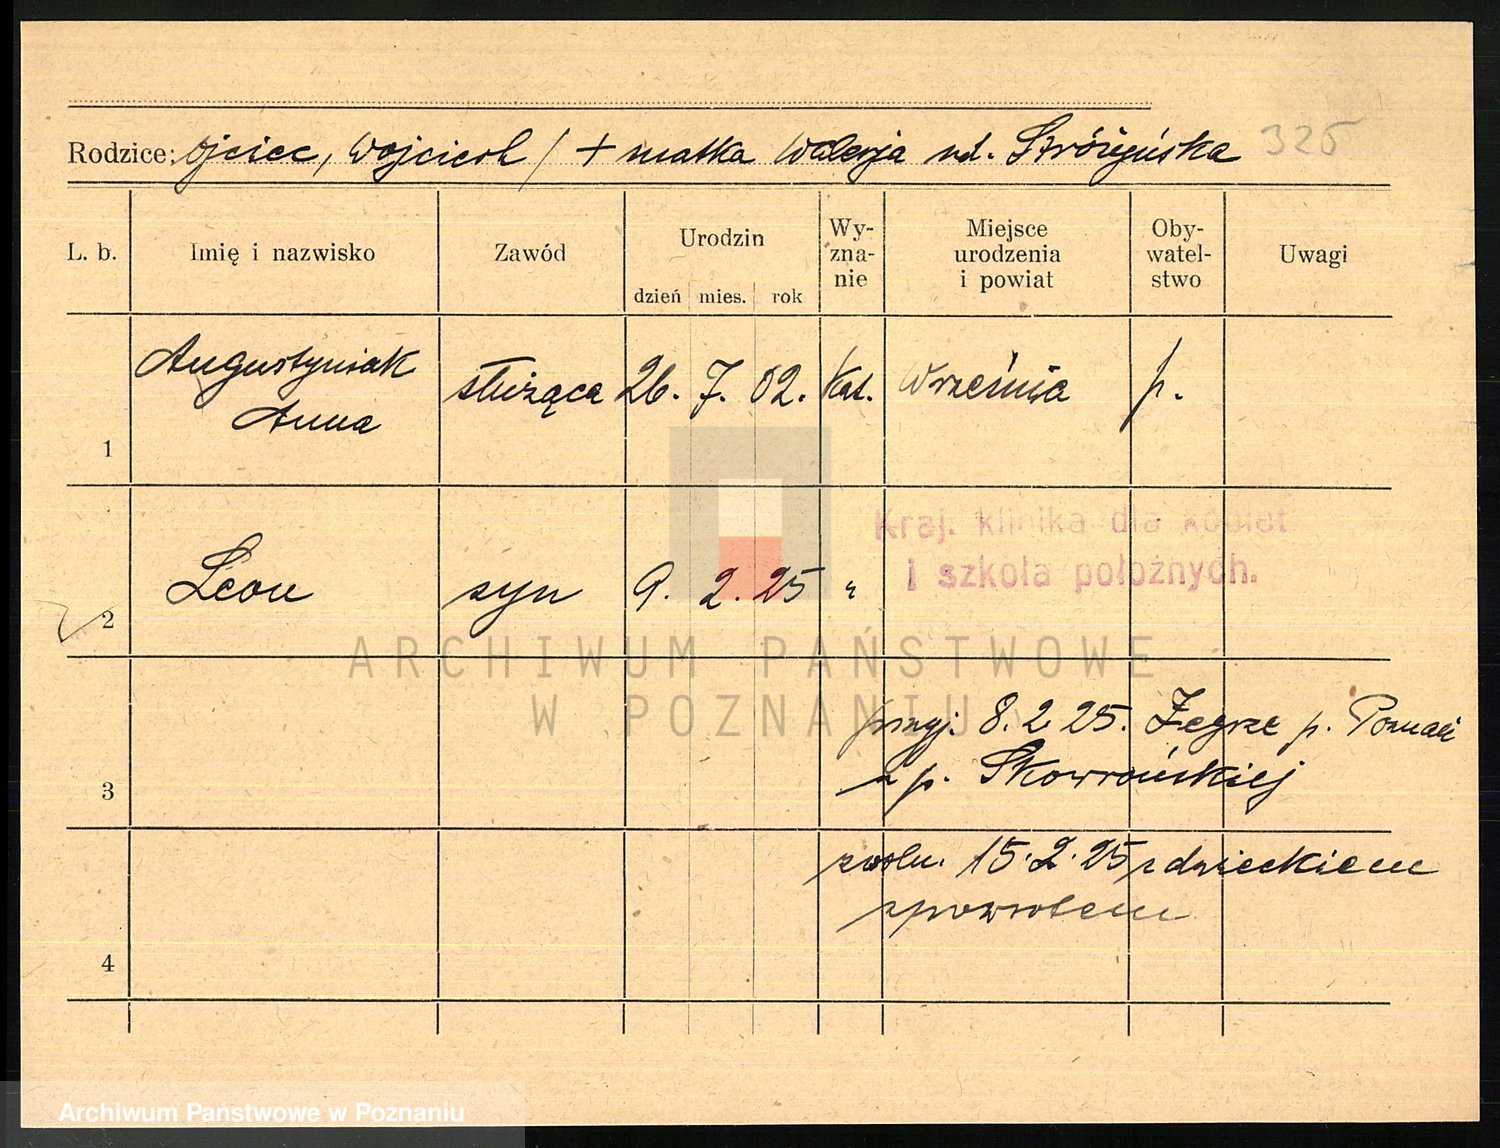 Rodzice: ojciec, Wojciech / + matka Walerja ud. Stróżyńska 325
L. b. Imię i nazwisko Zawód Urodzin Wy-zna-nie Miejsce urodzenia i powiat Oby-watel-stwo Uwagi
dzień mies. rok
Augustyniak
Anna służąca 26. 7. 02. Kat. Września p.
1
Kraj. klinika dla kobiet
i szkoła położnych.
Leon syn 9. 2. 25 "
2
ARCHIWUM PAŃSTWOWE
W POZNANIU
przyj. 8. 2 25. Zegrze p. Poznań
u p. Skowrońskiej
3
zwoln. 15. 2. 25 z dzieckiem
zpowrotem
4
Archiwum Państwowe w Poznaniu